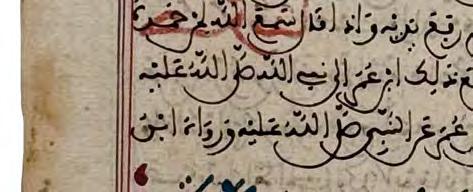 رفع يديه واذا قال سمع الله لمن حمده
ذلك ابن عمر الى نبي الله صلى الله عليه
عمر عن النبي صلى الله عليه ورواه ابن